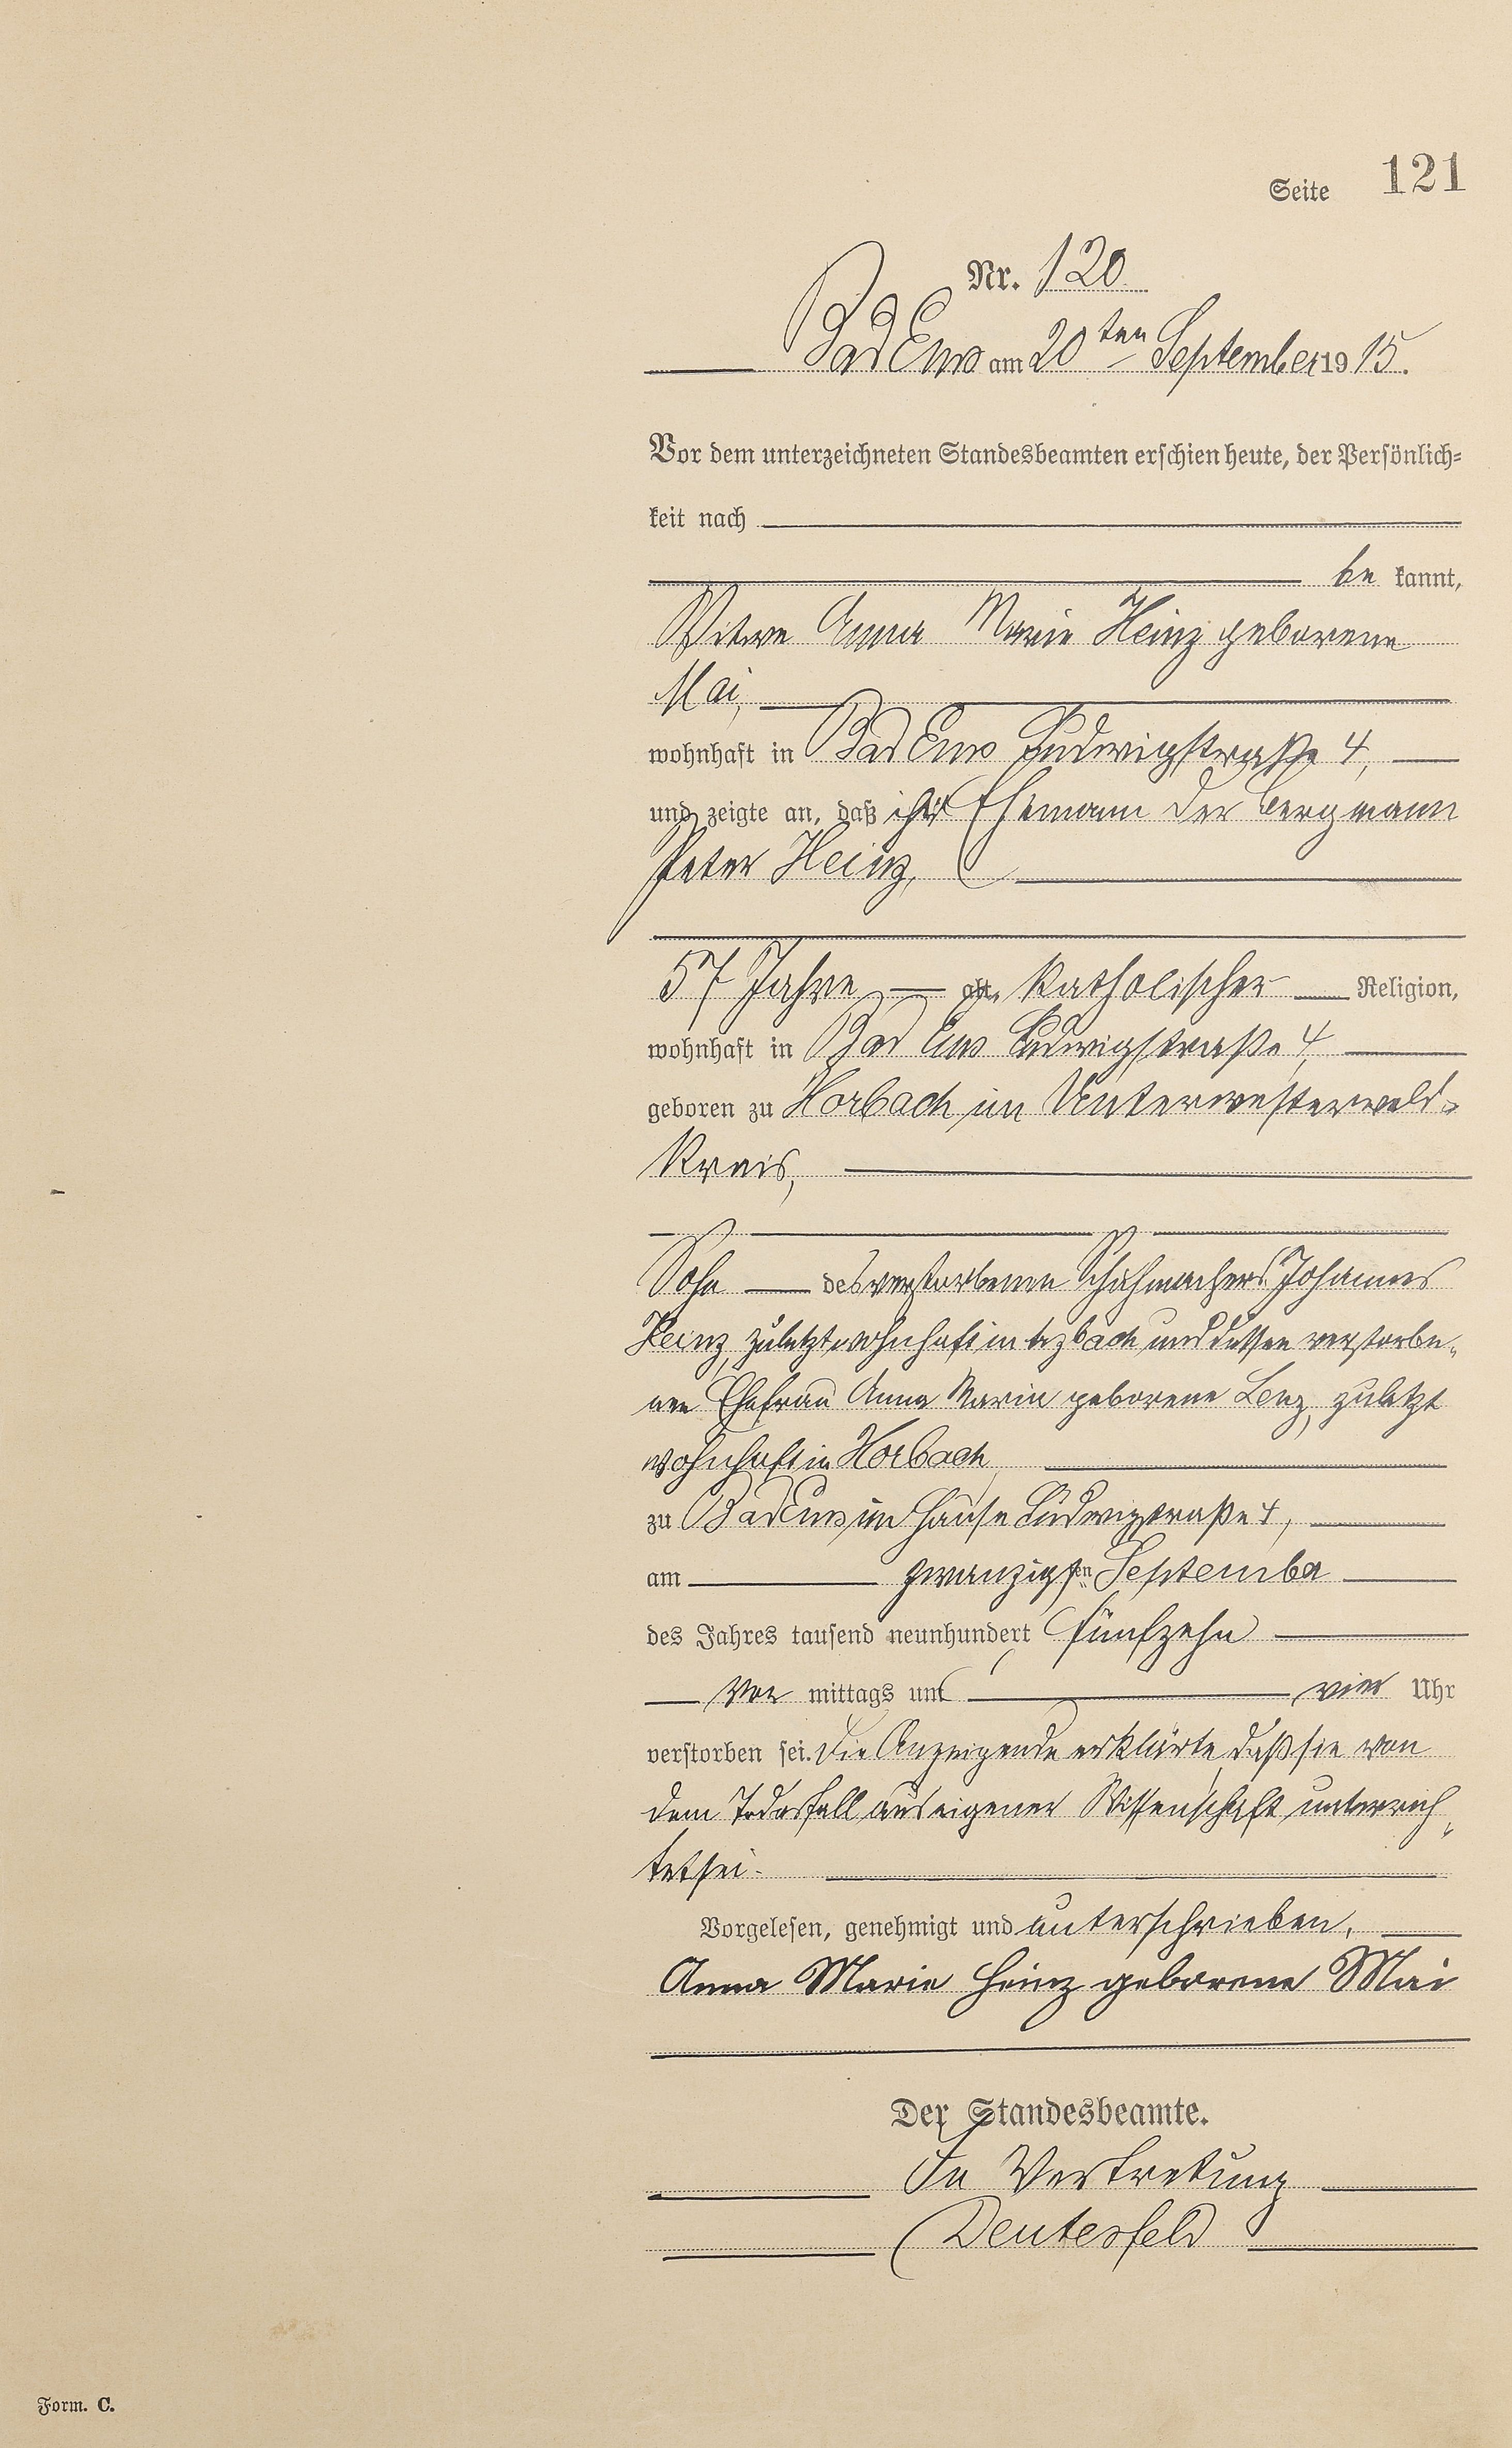 Seite 121
Nr. 120
Bad Ems am 20ten September 1915.
Vor dem unterzeichneten Standesbeamten erschien heute, der Persönlich-
keit nach
be kannt,
Witwe Anna Marie Heinz geborene
Mai,
wohnhaft in Bad Ems Ludwigstraße 4,
und zeigte an, daß ihr Ehemann der Bergmann
Peter Heinz,
57 Jahre alt, katholischer Religion,
wohnhaft in Bad Ems Ludwigstraße 4,
geboren zu Horbach im Unterwesterwald-
kreis,
Sohn des verstorbenen Schuhmachers Johannes
Heinz, zuletzt wohnhaft in und dessen verstorbe-
nen Ehefrau Anna Maria geborene Lenz, zuletzt
wohnhaft in Horbach
zu Bad Ems im Hause Ludwigstraße 4,
am zwanzigsten September
des Jahres tausend neunhundert fünfzehn
Vor mittags um vier Uhr
verstorben sei. Die Anzeigende erklärte, daß sie von
dem Todesfall aus eigener Wissenschaft unterrich-
tet sei.
Vorgelesen, genehmigt und unterschrieben.
Anna Marie Heinz geborene Mai
Der Standesbeamte.
In Vertretung
Deutesfeld
Form. C.